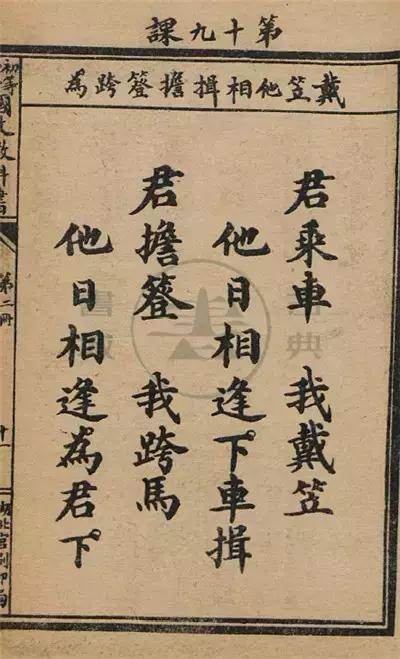 第十九課
戴笠他相揖擔簦跨為
君乘車 我戴笠
他日相逢下車揖
君擔簦 我跨馬
他日相逢為君下
初等國教科書
第二冊
十一